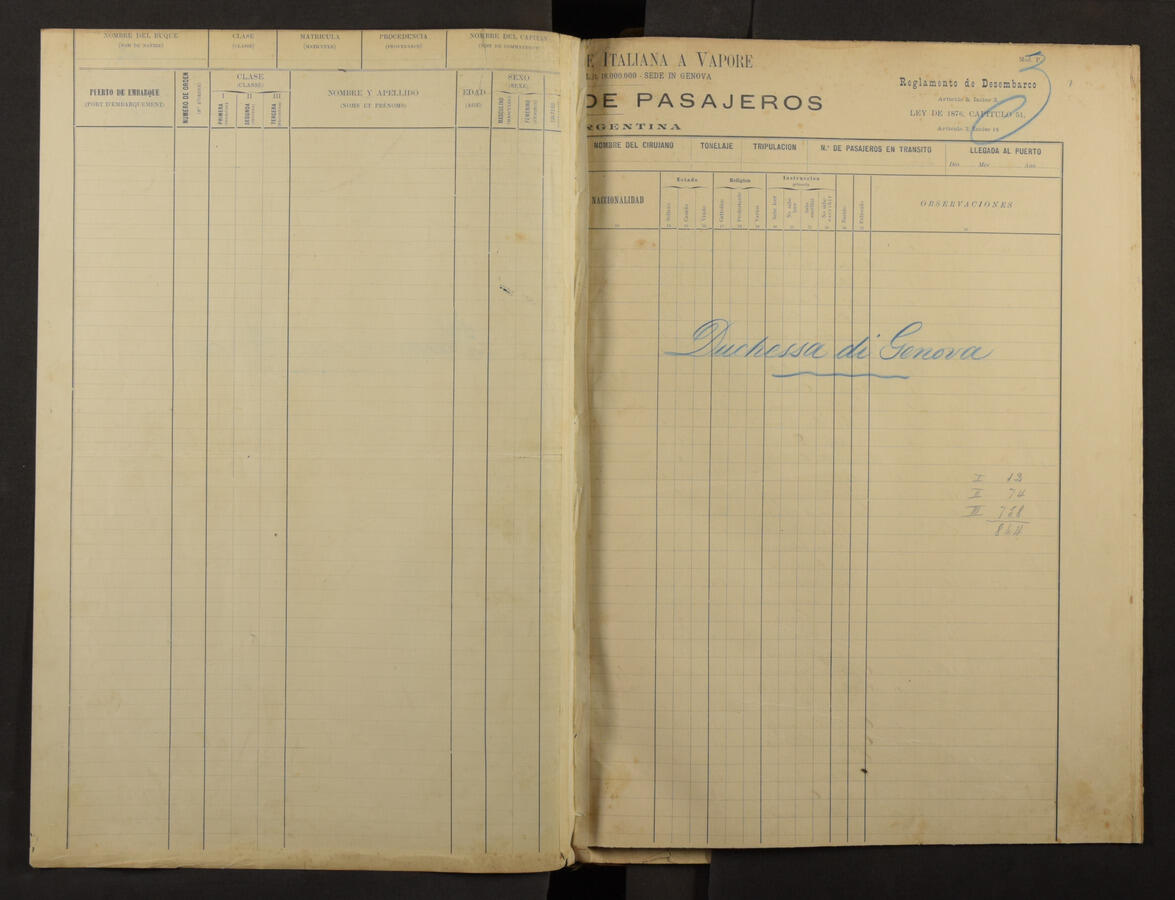 NOMBRE DEL BUQUE
(NOM DU NAVIRE)
CLASE
(CLASSE)
MATRICULA
(MATRICULE)
PROCEDENCIA
(PROVENANCE)
NOMBRE DEL CAPITAN
PUERTO DE EMBARQUE
(PORT D'EMBARQUEMENT)
NÚMERO DE ORDEN
CLASE
(CLASSE)
I II III
PRIMERA
SEGUNDA
TERCERA
NOMBRE Y APELLIDO
(NOMS ET PRÉNOMS)
EDAD
(AGE)
SEXO
(SEXE)
MASCULINO
FEMENINO
E ITALIANA A VAPORE
18.000.000 - SEDE IN GENOVA
DE PASAJEROS
RGENTINA
3
Reglamento de Desembarco
Articulo 3, Inciso 3
LEY DE 1876, CAPITULO 51,
Articulo 7, Inciso 14
NOMBRE DEL CIRUJANO
TONELAJE
TRIPULACION
N.º DE PASAJEROS EN TRANSITO
LLEGADA AL PUERTO
Dia Mes Ano
NACCIONALIDAD
Estado
Soltero
Casado
Viudo
Religion
Catholico
Protestante
Varios
Instruccion
primaria
Sabe leer
No sabe leer
Sabe escribir
No sabe escribir
OBSERVACIONES
Duchessa di Genova
I 12
II 74
III 758
844